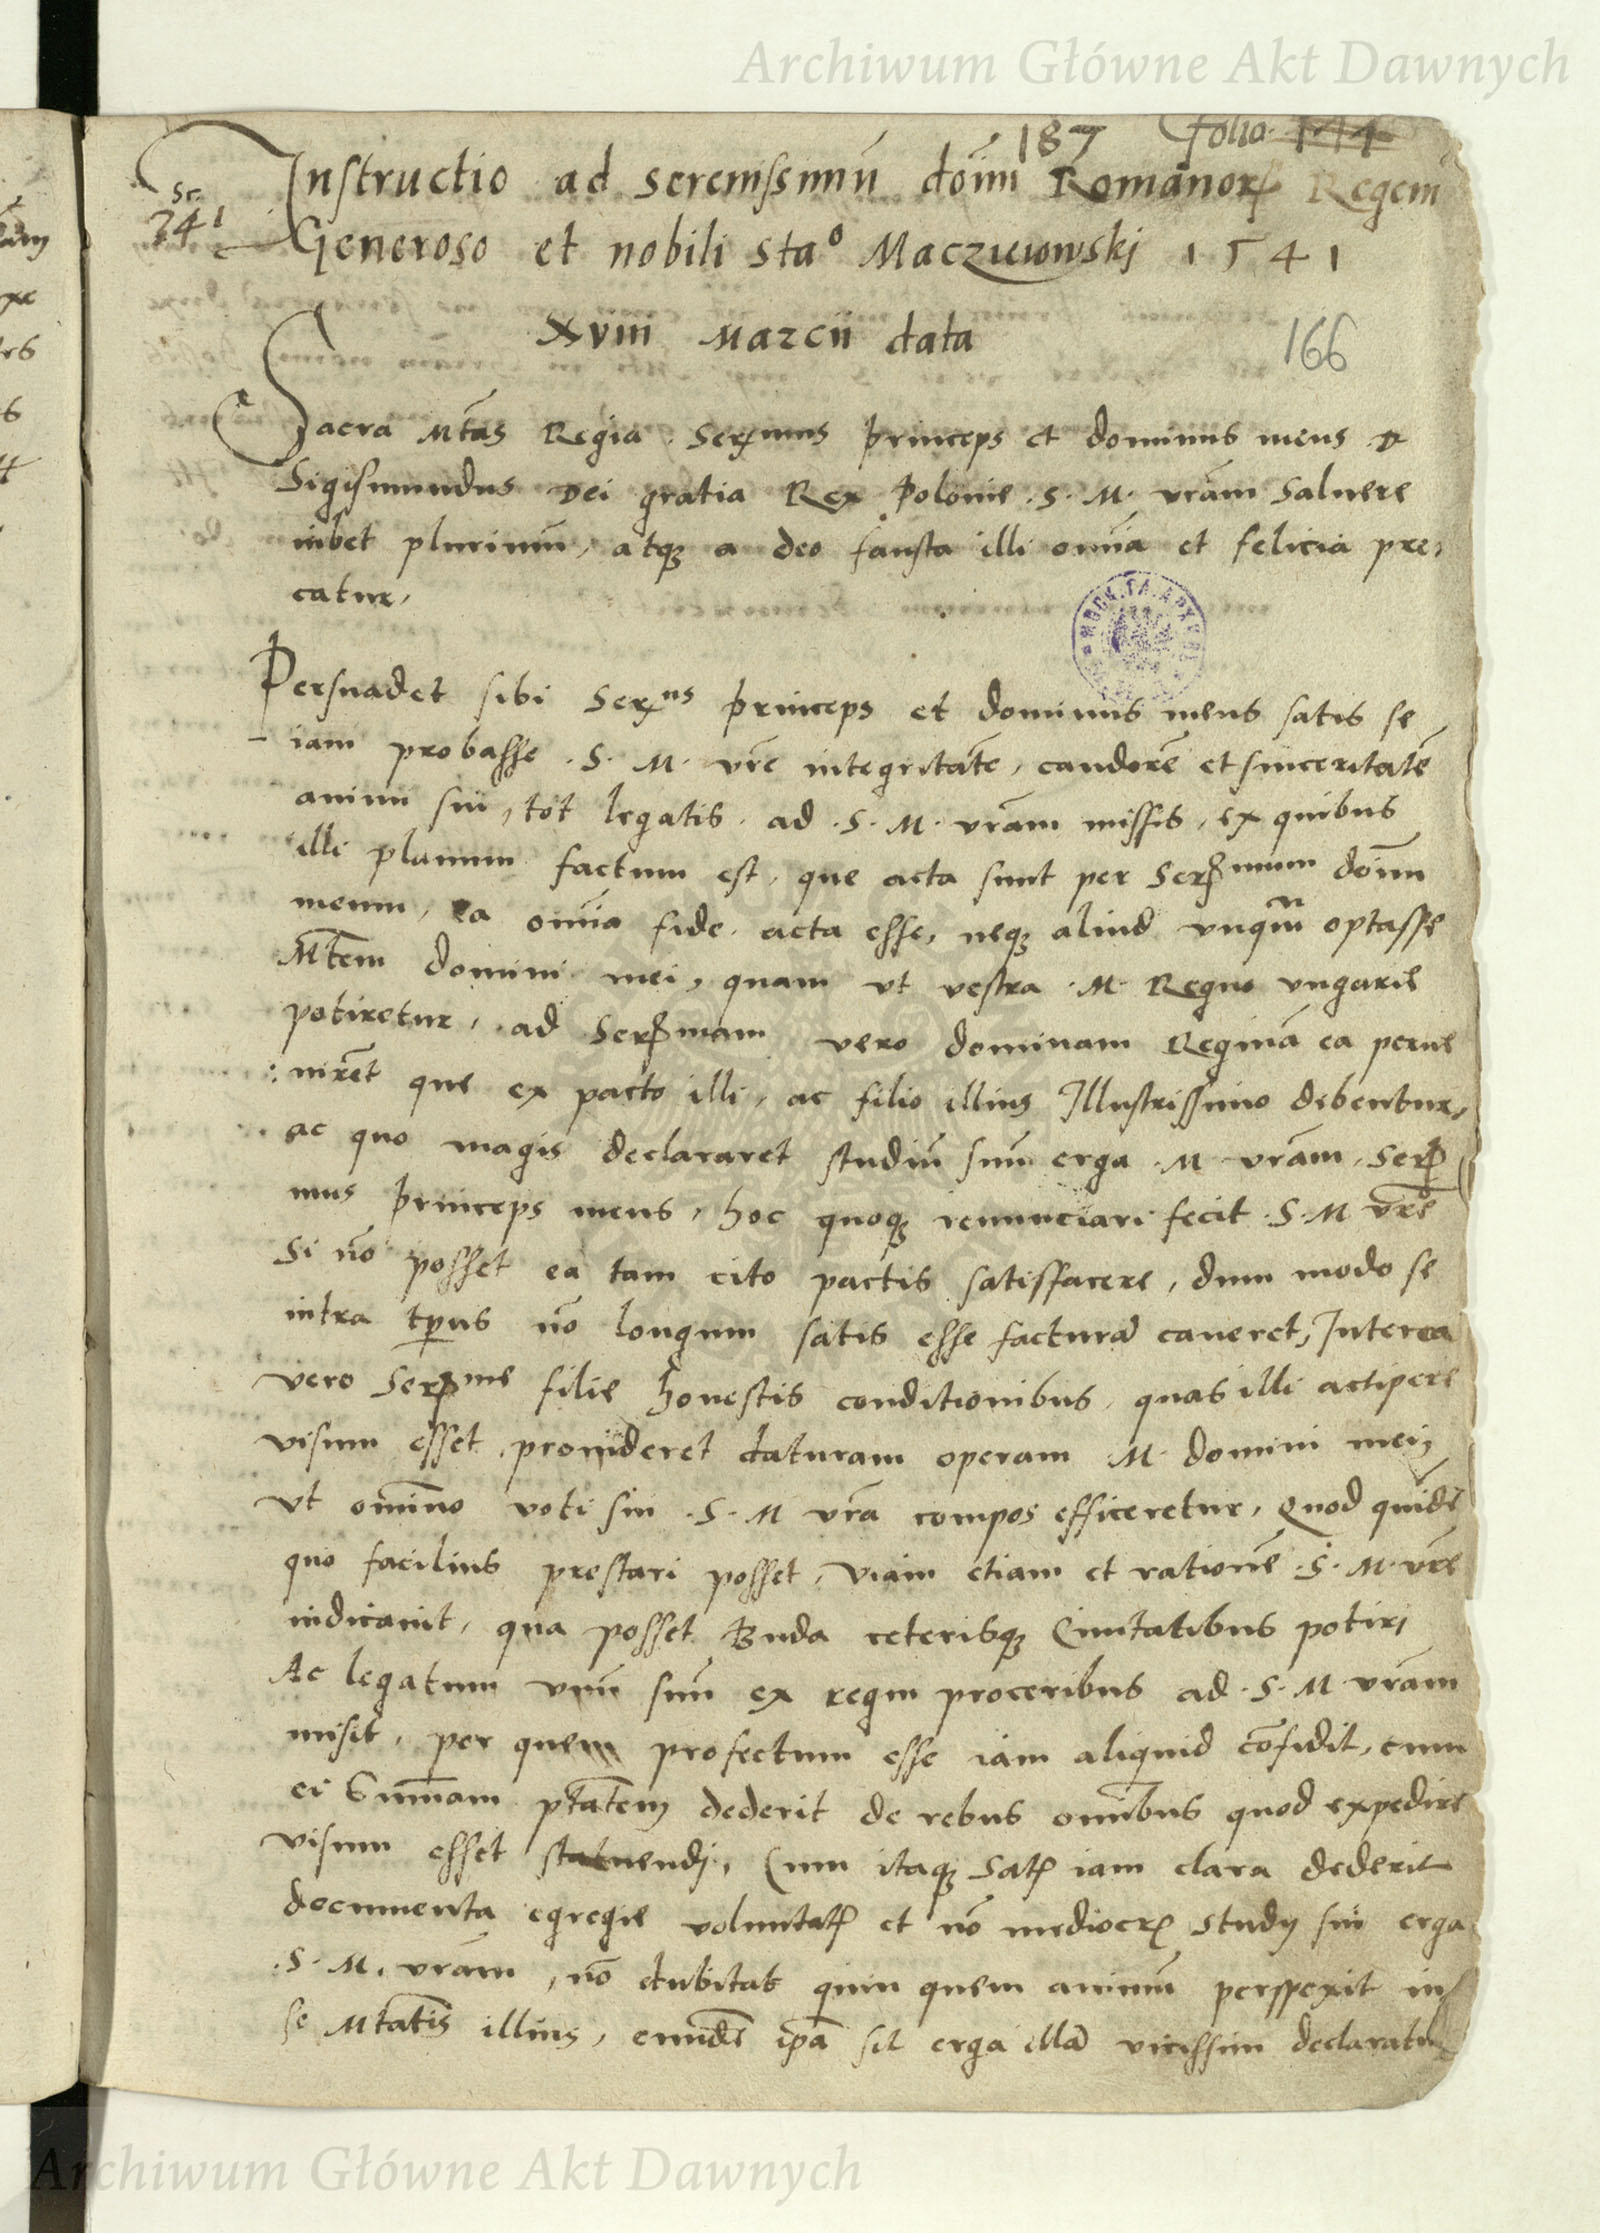 Archiwum Główne Akt Dawnych
187 folio 144
Instructio ad serenissimū doīm Romanorꝝ Regem
Sc.
741
Generoso et nobili Sta⁰ Maczieiowski 1541
XVIII Marcii data
166
Sacra Mtas Regia Serᵐus princeps et dominus meus D
Sigismundus Dei gratia Rex Polonie S. M. vram Saluere
iubet plurimū, atq3 a deo fausta illi omīa et felicia pre,
catur,
Persuadet sibi Serᵐᵘˢ princeps et dominus meus satis se
iam probasse S. M. vre integritatē, candorē et sinceritatē
animi sui, tot legatis ad S. M. vram missis, ex quibus
illi planum factum est, que acta sunt per Serᵐum doīm
meum, ea omīa fide acta esse, neq3 aliud vnqm̄ optasse
Mtem domini mei, quam vt vestra M. Regno vngarie
potiretur, ad Serᵐam vero dominam Reginā ea perue
niret que ex pacto illi, ac filio illius Illustrissimo debentur,
ac quo magis declararet studiū suū erga M vram, Serᵐ
mus princeps meus, hoc quoq3 renunciari fecit S. M vre
Si nō posset ea tam cito pactis satisfacere, dum modo se
intra tpus nō longum satis esse facturā caueret, Interea
vero Serᵐᵉ filie honestis conditionibus, quas illi accipere
visum esset prouideret daturam operam M. domini mei,
vt omīno voti sui S. M vra compos efficeretur, Quod quidē
quo facilius prestari posset, viam etiam et rationē S. M. vre
indicauit, qua posset Buda ceterisq3 Ciuitatibus potiri
Ac legatum vnū suū ex regni proceribus ad S. M vram
misit, per quem profectum esse iam aliquid cōfidit, cum
ei Summam ptatem dederit de rebus omībus quod expedire
visum esset statuendi, Cum itaq3 Satꝭ iam clara dederit
documenta egregie voluntatꝭ et nō mediocrꝭ studij sui erga
S. M. vram, nō dubitat quin quem animū perspexit in
se Mtatis illius, eundē ipa sit erga illā vicissim declaratu
Archiwum Główne Akt Dawnych